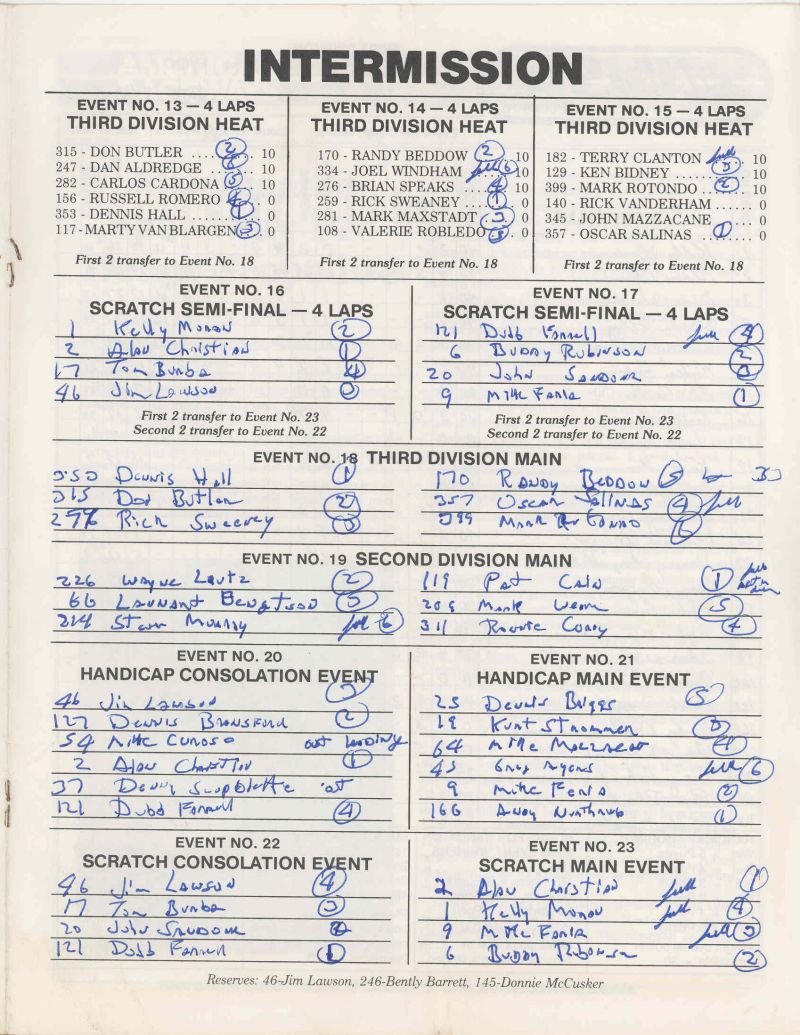 INTERMISSION
EVENT NO. 13 — 4 LAPS
THIRD DIVISION HEAT
315 - DON BUTLER .... 2 .. 10
247 - DAN ALDREDGE .. 10
282 - CARLOS CARDONA .. 10
156 - RUSSELL ROMERO 4 .. 0
353 - DENNIS HALL ...... 1 .. 0
117 - MARTY VAN BLARGEN 3 . 0
First 2 transfer to Event No. 18
EVENT NO. 14 — 4 LAPS
THIRD DIVISION HEAT
170 - RANDY BEDDOW 2 .. 10
334 - JOEL WINDHAM fell 6 10
276 - BRIAN SPEAKS .. 4 .. 10
259 - RICK SWEANEY .. 1 .. 0
281 - MARK MAXSTADT . 3 . 0
108 - VALERIE ROBLEDO 5 . 0
First 2 transfer to Event No. 18
EVENT NO. 15 — 4 LAPS
THIRD DIVISION HEAT
182 - TERRY CLANTON fell . 10
129 - KEN BIDNEY ..... 3 .. 10
399 - MARK ROTONDO .. 2 .. 10
140 - RICK VANDERHAM ...... 0
345 - JOHN MAZZACANE .... 0
357 - OSCAR SALINAS 1 ........ 0
First 2 transfer to Event No. 18
EVENT NO. 16
SCRATCH SEMI-FINAL — 4 LAPS
1 Kelly Moran 2
2 Alan Christian 1
17 Tom Bumba 4
46 Jim Lawson 3
First 2 transfer to Event No. 23
Second 2 transfer to Event No. 22
EVENT NO. 17
SCRATCH SEMI-FINAL — 4 LAPS
121 Dubb Ferrell fell 4
6 Buddy Robinson 2
20 John Sandona 3
9 Mike Faria 1
First 2 transfer to Event No. 23
Second 2 transfer to Event No. 22
EVENT NO. 18 THIRD DIVISION MAIN
353 Dennis Hall 1
315 Don Butler 2
Rick Sweeney 3
170 Randy Beddow 5
357 Oscar Salinas 4 fell
399 Mark Rotondo 6
EVENT NO. 19 SECOND DIVISION MAIN
226 Wayne Lautz 2
66 3
214 Murray fell 6
119 Pat Cain 1
Mark 5
311 4
EVENT NO. 20
HANDICAP CONSOLATION EVENT
46 Jim Lawson 3
127 Dennis Bransford 2
54 Mike Curoso out leading
2 Alan Christian 1
37 Denny out
121 Dubb Ferrell 4
EVENT NO. 21
HANDICAP MAIN EVENT
25 Dennis Briggs 5
19 Kurt Strommer 3
64 Mike 4
fell 6
9 Mike Faria 2
166 Andy Northrup 1
EVENT NO. 22
SCRATCH CONSOLATION EVENT
46 Jim Lawson 4
17 Tom Bumba 3
20 John Sandona 2
121 Dubb Ferrell 1
EVENT NO. 23
SCRATCH MAIN EVENT
2 Alan Christian fell 1
1 Kelly Moran fell 4
9 Mike Faria fell 3
6 Buddy Robinson 2
Reserves: 46-Jim Lawson, 246-Bently Barrett, 145-Donnie McCusker